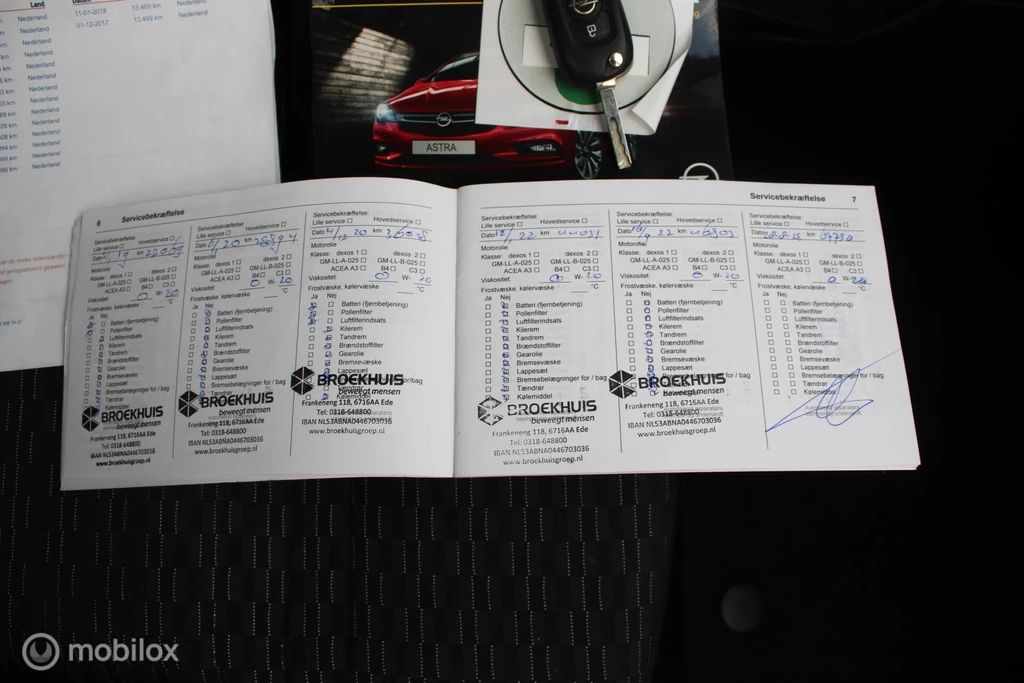 Land
Datum
Nederland 11-01-2018 13,460 km Nederland
Nederland 01-12-2017 13,459 km Nederland
Nederland
Nederland
Nederland
Nederland
Nederland
Nederland
Nederland
Nederland
Nederland
Nederland
ASTRA
6 Servicebekræftelse
Servicebekræftelse:
Lille service Hovedservice
Dato km
Motorolie:
Klasse: dexos 1 dexos 2
GM-LL-A-025 GM-LL-B-025
ACEA A3 B4 C3
Viskositet 0 W- 20
Frostvæske, kølervæske °C
Ja Nej
Batteri (fjernbetjening)
Pollenfilter
Luftfilterindsats
Kilerem
Tandrem
Brændstoffilter
Gearolie
Bremsevæske
Lappesæt
Bremsebelægninger for / bag
Tændrør
Kølemiddel
BROEKHUIS
beweegt mensen
Frankeneng 118, 6716AA Ede
Tel: 0318-648800
IBAN NL53ABNA0446703036
www.broekhuisgroep.nl
Servicebekræftelse:
Lille service Hovedservice
Dato km
Motorolie:
Klasse: dexos 1 dexos 2
GM-LL-A-025 GM-LL-B-025
ACEA A3 B4 C3
Viskositet: 0 W- 20
Frostvæske, kølervæske °C
Ja Nej
Batteri (fjernbetjening)
Pollenfilter
Luftfilterindsats
Kilerem
Tandrem
Brændstoffilter
Gearolie
Bremsevæske
Lappesæt
Bremsebelægninger for / bag
Tændrør
BROEKHUIS
beweegt mensen
Frankeneng 118, 6716AA Ede
Tel: 0318-648800
IBAN NL53ABNA0446703036
www.broekhuisgroep.nl
Servicebekræftelse:
Lille service Hovedservice
Dato km
Motorolie:
Klasse: dexos 1 dexos 2
GM-LL-A-025 GM-LL-B-025
ACEA A3 B4 C3
Viskositet: 0 W- 20
Frostvæske, kølervæske °C
Ja Nej
Batteri (fjernbetjening)
Pollenfilter
Luftfilterindsats
Kilerem
Tandrem
Brændstoffilter
Gearolie
Bremsevæske
Lappesæt
BROEKHUIS
beweegt mensen
Frankeneng 118, 6716AA Ede
Tel: 0318-648800
IBAN NL53ABNA0446703036
www.broekhuisgroep.nl
Servicebekræftelse 7
Servicebekræftelse:
Lille service Hovedservice
Dato km
Motorolie:
Klasse: dexos 1 dexos 2
GM-LL-A-025 GM-LL-B-025
ACEA A3 B4 C3
Viskositet: 0 W- 20
Frostvæske, kølervæske °C
Ja Nej
Batteri (fjernbetjening)
Pollenfilter
Luftfilterindsats
Kilerem
Tandrem
Brændstoffilter
Gearolie
Bremsevæske
Lappesæt
Bremsebelægninger for / bag
Tændrør
Kølemiddel
BROEKHUIS
beweegt mensen
Frankeneng 118, 6716AA Ede
Tel: 0318-648800
IBAN NL53ABNA0446703036
www.broekhuisgroep.nl
Servicebekræftelse:
Lille service Hovedservice
Dato km
Motorolie:
Klasse: dexos 1 dexos 2
GM-LL-A-025 GM-LL-B-025
ACEA A3 B4 C3
Viskositet: 0 W- 20
Frostvæske, kølervæske °C
Ja Nej
Batteri (fjernbetjening)
Pollenfilter
Luftfilterindsats
Kilerem
Tandrem
Brændstoffilter
Gearolie
Bremsevæske
Lappesæt
BROEKHUIS
beweegt mensen
Frankeneng 118, 6716AA Ede
Tel: 0318-648800
IBAN NL53ABNA0446703036
www.broekhuisgroep.nl
Servicebekræftelse:
Lille service Hovedservice
Dato km
Motorolie:
Klasse: dexos 1 dexos 2
GM-LL-A-025 GM-LL-B-025
ACEA A3 B4 C3
Viskositet: 0 W- 20
Frostvæske, kølervæske °C
Ja Nej
Batteri (fjernbetjening)
Pollenfilter
Luftfilterindsats
Kilerem
Tandrem
Brændstoffilter
Gearolie
Bremsevæske
Lappesæt
Bremsebelægninger for / bag
Tændrør
Kølemiddel
mobilox